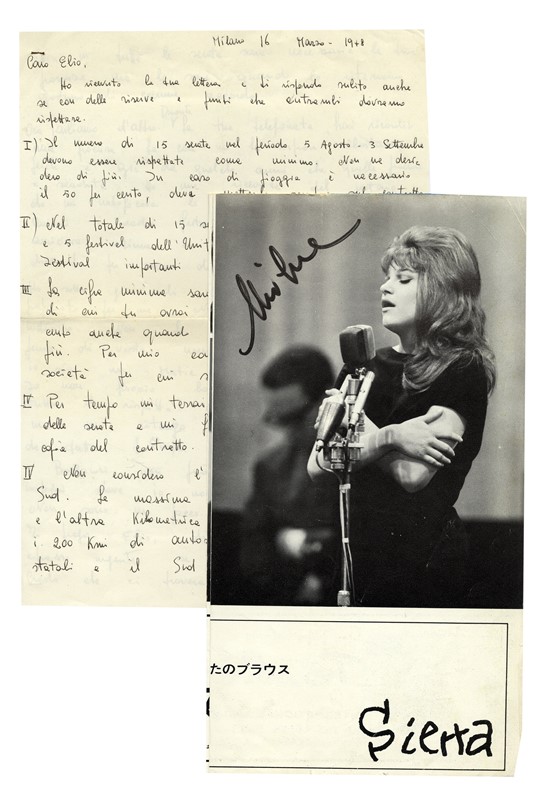 Milano 16 Marzo - 1978
Caro Elio,
Ho ricevuto la tua lettera e ti rispondo subito anche
se con delle riserve e punti che entrambi dovremo
rispettare.
I) Il numero di 15 serate nel periodo 5 Agosto - 3 Settembre
devono essere rispettate come minimo. Non ne desi
dero di più. In caso di pioggia è necessario
il 50 per cento, deve sul contratto
II) Nel totale di 15 se
e 5 festival dell'Unit
Festival importanti
III La cifra minima sar
di cui tu avrai
cento anche quand
più. Per mio
società per cui s
IV Per tempo mi
delle serate e mi f
copia del contratto.
IV Non considero l'
Sud. La massima
e l'altra Kilometrica
i 200 Kmi di auto
statali e il Sud
Milva
たのブラウス
Sierra